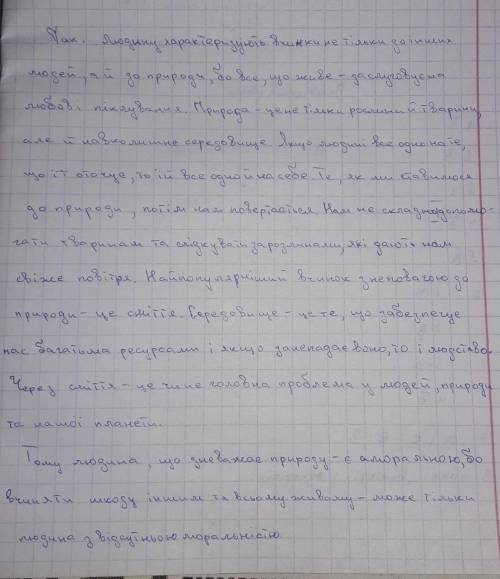 Так. Людину характеризують вчинки не тільки до інших
людей, а й до природи, бо все, що живе - заслуговує на
любов і піклування. Природа - це не тільки рослини й тварини,
але й навколишнє середовище. Якщо людині все одно на те,
що її оточує, то їй все одно й на себе. Те, як ми ставимося
до природи, потім нам повертається. Нам не складно допома-
гати тваринам та слідкувати за рослинами, які дають нам
свіже повітря. Найпопулярніший вчинок з неповагою до
природи - це сміття. Середовище - це те, що забезпечує
нас багатьма ресурсами і якщо занепадає воно, то і людство.
Через сміття - це чи не головна проблема у людей, природи
та нашої планети.
Тому людина, що зневажає природу - є аморальною, бо
вчиняти шкоду іншим та всьому живому - може тільки
людина з відсутньою моральністю